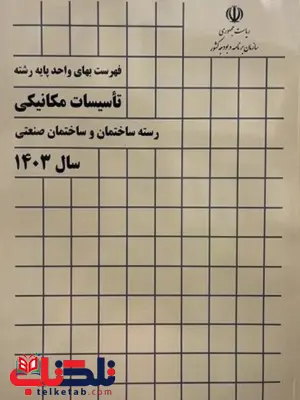 ریاست جمهوری
سازمان برنامه و بودجه کشور
فهرست بهای واحد پایه رشته
تأسیسات مکانیکی
رسته ساختمان و ساختمان صنعتی
سال ۱۴۰۳
تلکتاب
telketab.com